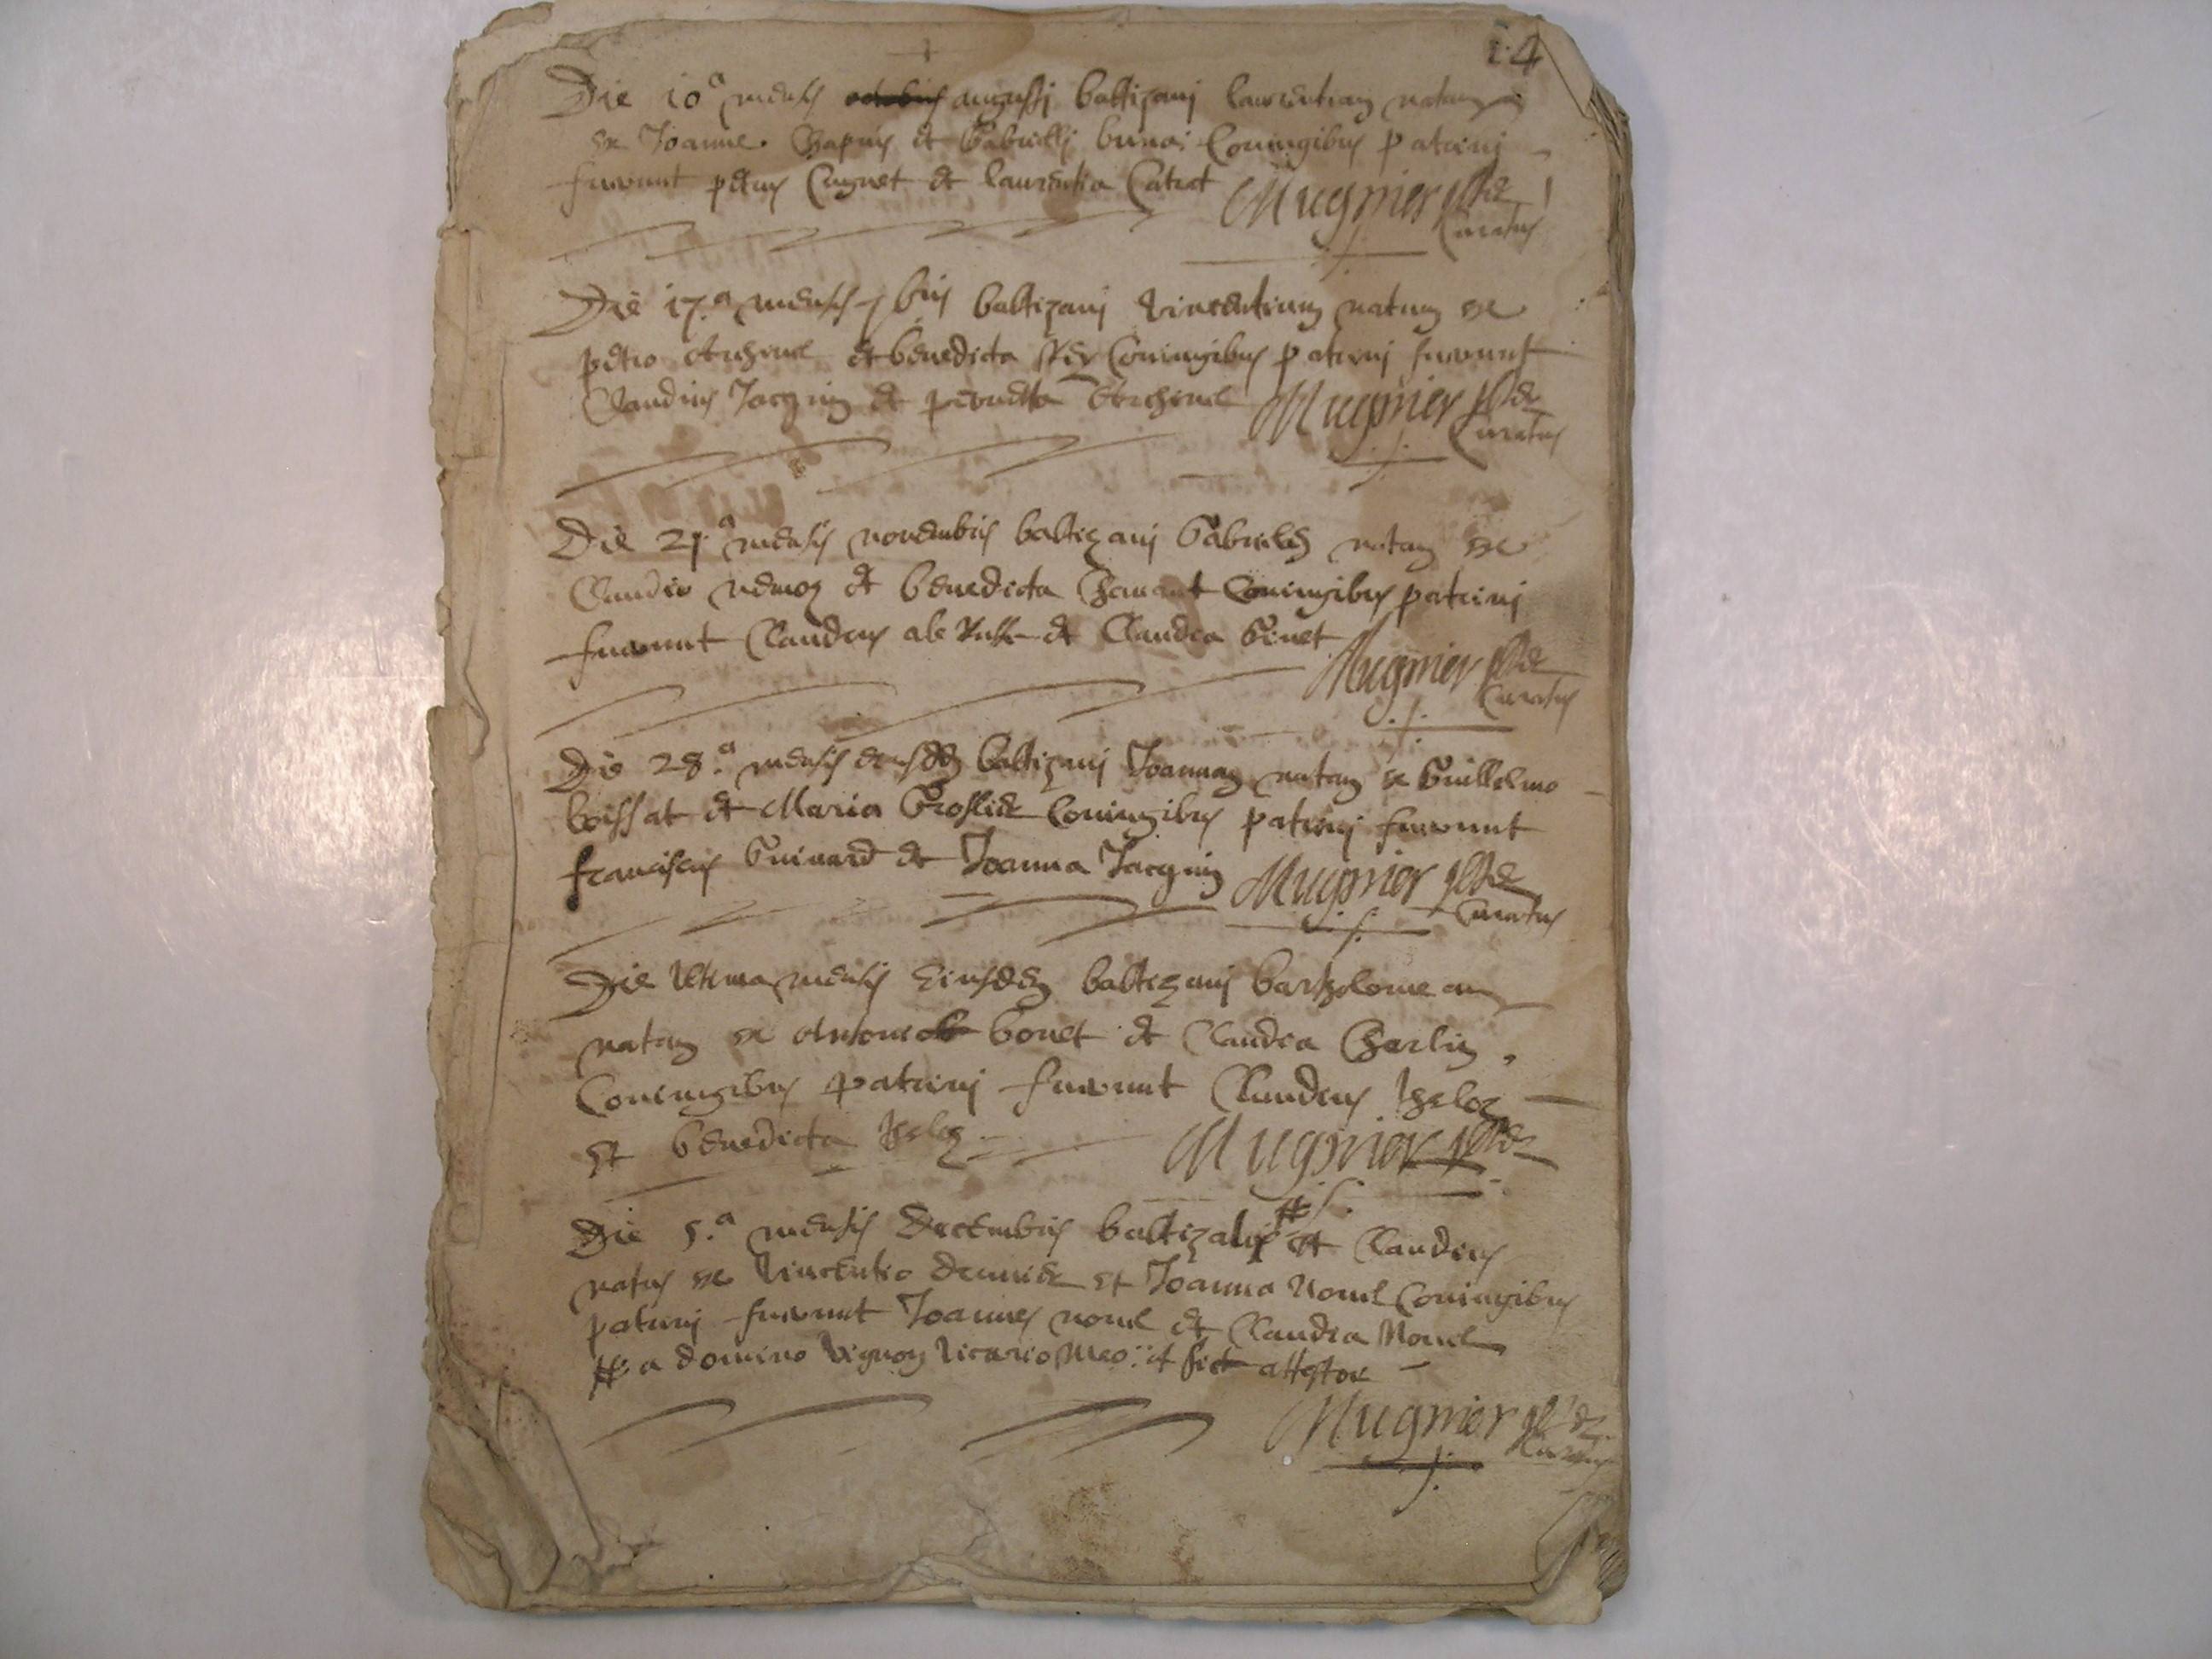 14
Die 10a mensis octobris augusti baptizavi laurentiam natam
ex Joanne Chapuis et Gabrielli coniugibus patrini
fuerunt petrus Cugnet et laurentia Catret Mugnier
Curatus
Die 17.a mensis 7bris baptizavi Vincentium natum ex
petro et benedicta coniugibus patrini fuerunt
Claudius Jacquin et pernetta Mugnier
Curatus
Die 21.a mensis novembris baptizavi Gabrielem natam ex
Claudio et benedicta coniugibus patrini
fuerunt Claudius et Claudia Ginet Mugnier
Curatus
Die 28.a mensis eiusdem baptizavi Joannam natam ex Guillelmo
boissat et Maria Groslier coniugibus patrini fuerunt
franciscus Guinard et Joanna Jacquin Mugnier
Curatus
Die ultima mensis Eiusdem baptizavi bartholomeam
natam ex Antonio bonet et Claudia Charlin
Coniugibus patrini fuerunt Claudius
et benedicta Mugnier
Die 5.a mensis Decembris baptizatus # est Claudius
natus ex Vincentio et Joanna Novel coniugibus
patrini fuerunt Joannes novel et Claudia Novel
# a domino Vignon Vicario meo et sic attestor
Mugnier
Curatus